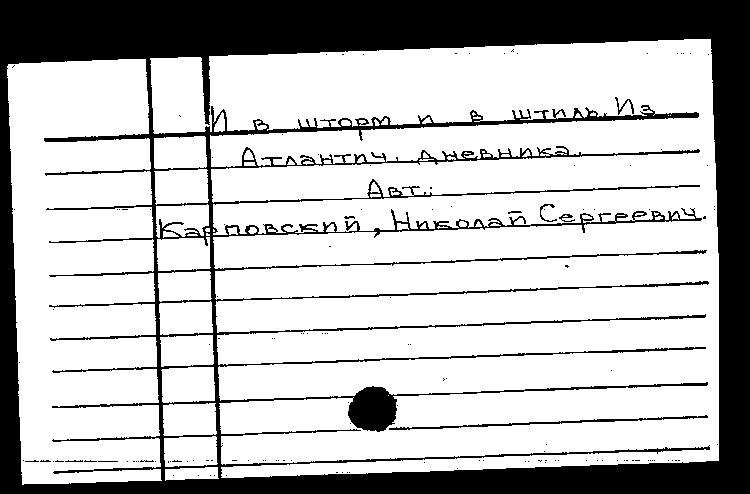 И в шторм и в штиль. Из
Атлантич. дневника.
Авт.:
Карповский, Николай Сергеевич.